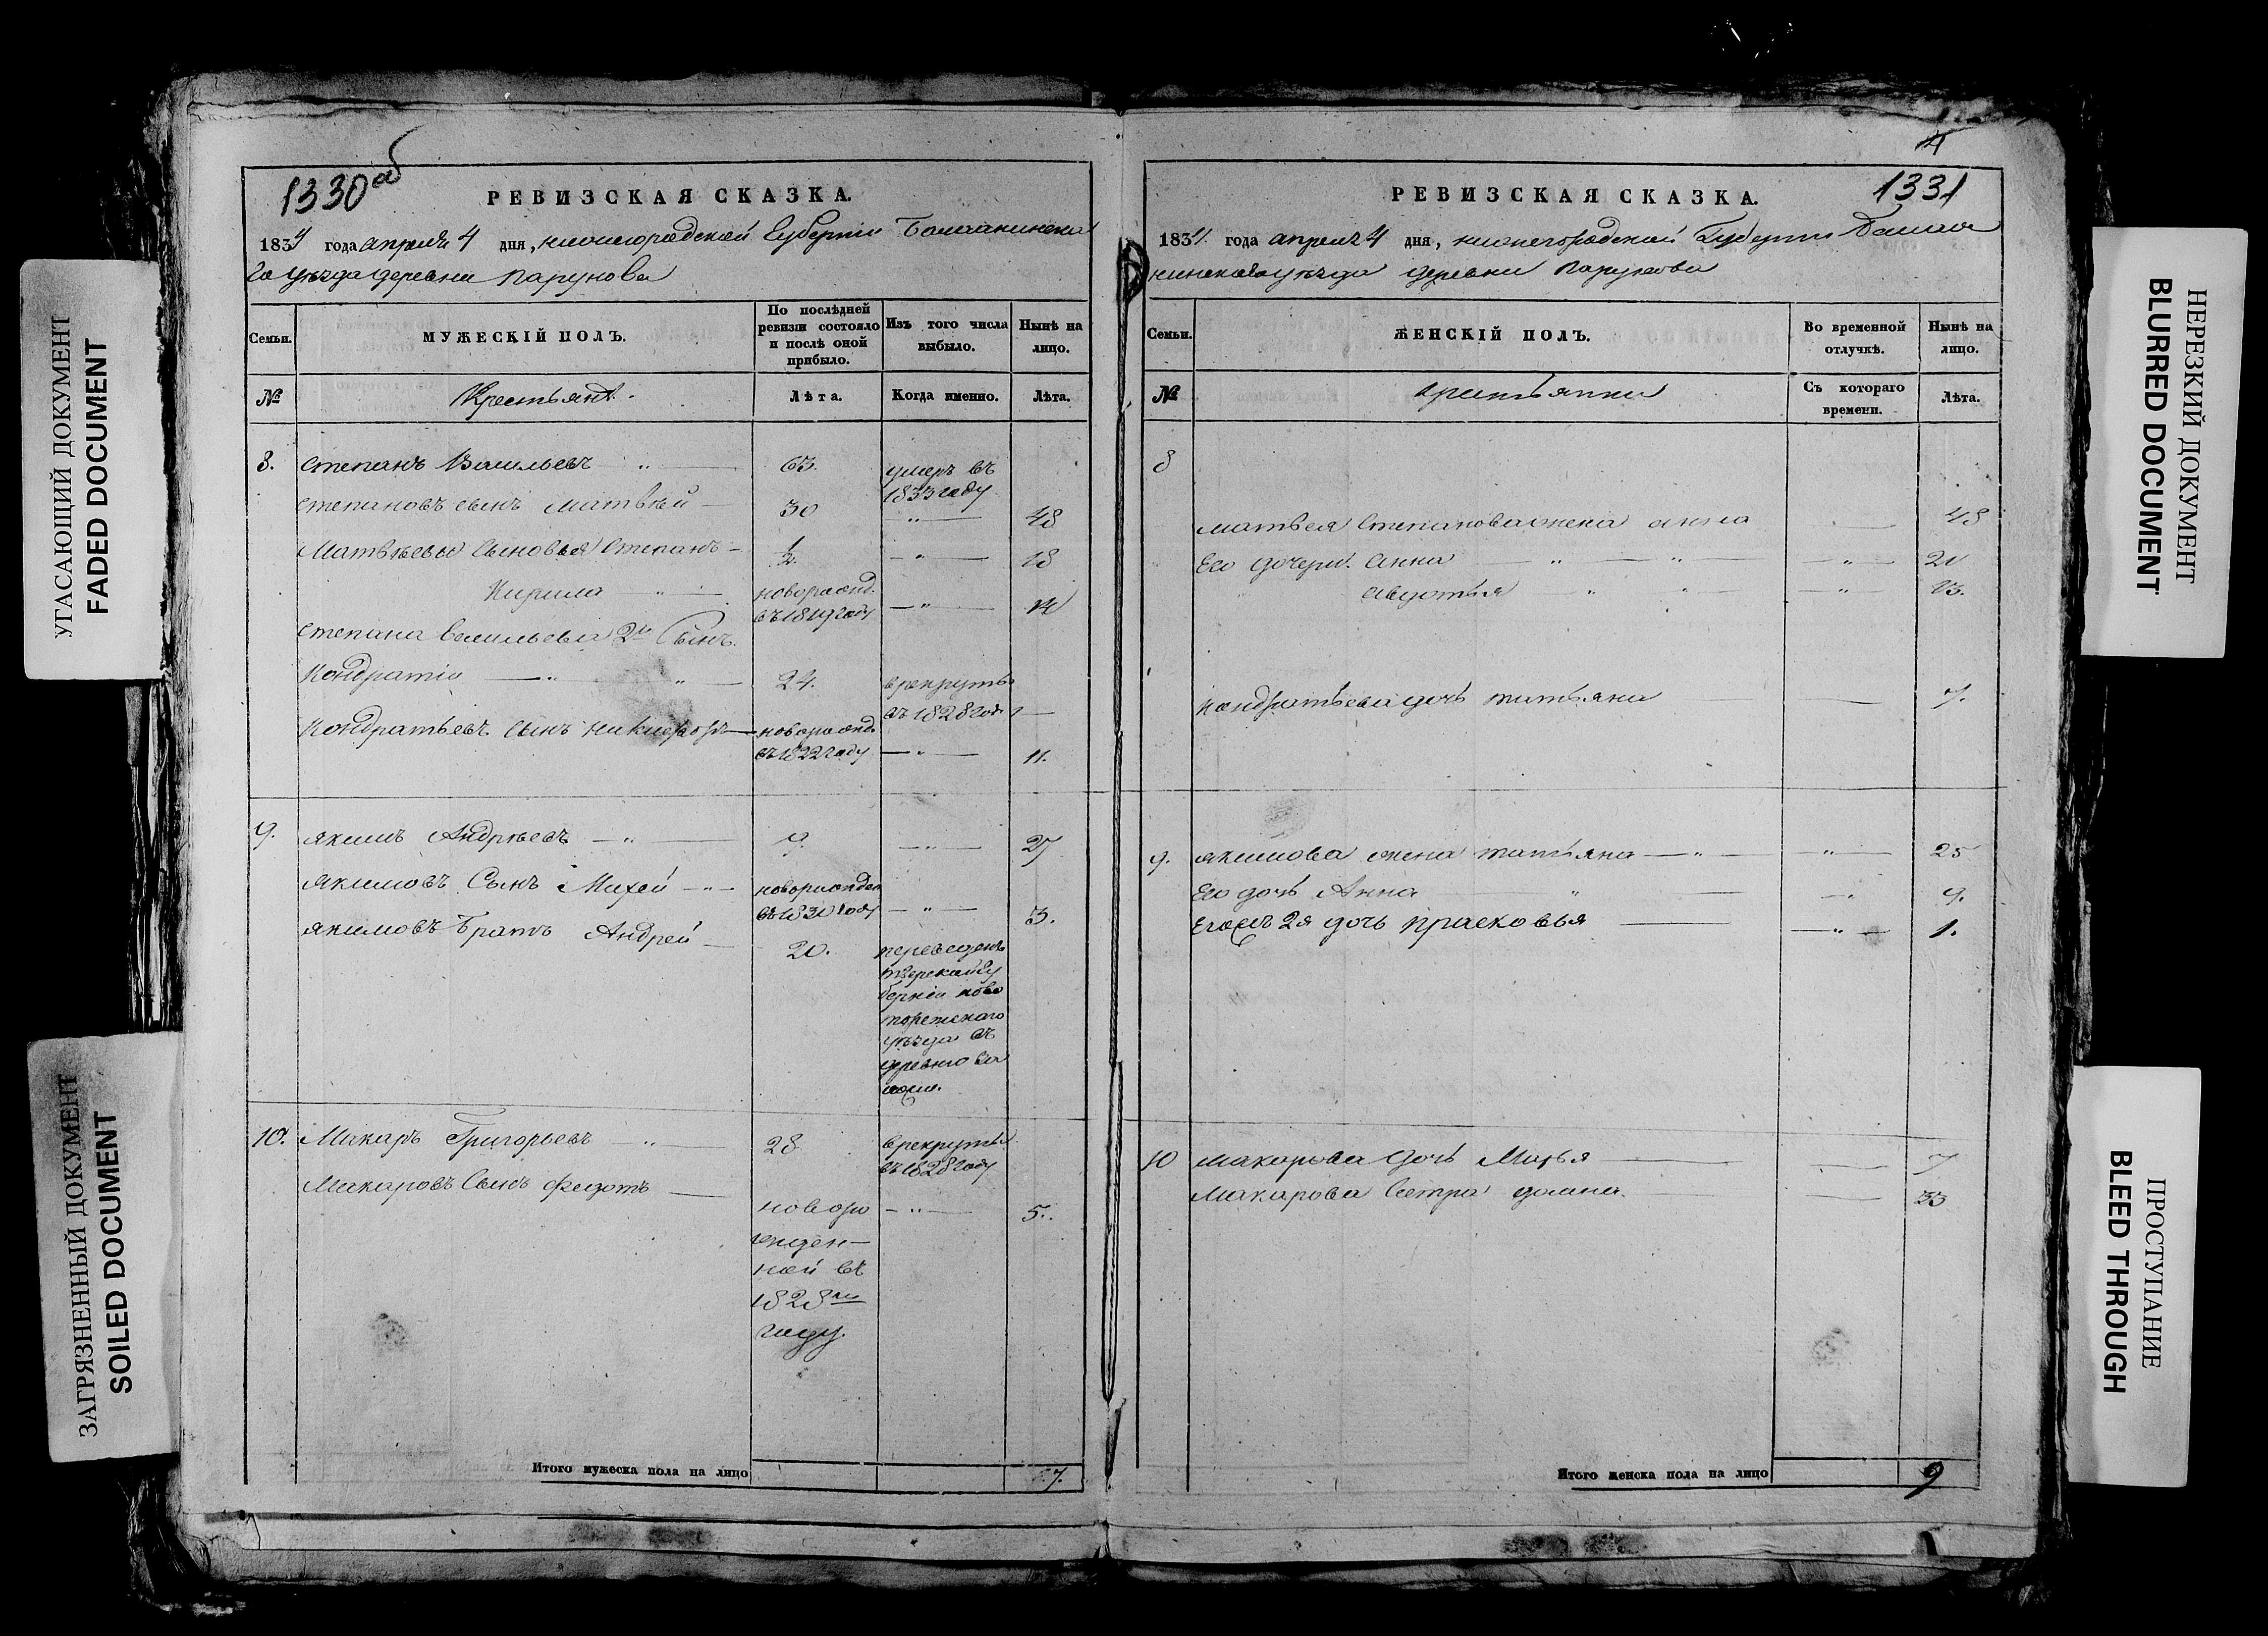 УГАСАЮЩИЙ ДОКУМЕНТ
FADED DOCUMENT
ЗАГРЯЗНЕННЫЙ ДОКУМЕНТ
SOILED DOCUMENT
1330 об
РЕВИЗСКАЯ СКАЗКА.
1834 года апреля 4 дня, нижегородской Губернии
го уезда деревни Парунова
Семьи.
МУЖЕСКІЙ ПОЛЪ.
По послѣдней ревизіи состояло и послѣ оной прибыло.
Изъ того числа выбыло.
Нынѣ на лицо.
№
Крестьянѣ.
Лѣта.
Когда именно.
Лѣта.
8. Степанъ Васильевъ 63. умеръ въ 1833 году
Степановъ сынъ Матвѣй 30 48
Матвѣевы Сыновья Степанъ 1/2 18
Кирила новорожд. въ 1819 году 14
Степана Васильева 2й Сынъ
Кондратій 24. врекруты въ 1828 год
Кондратьевъ Сынъ Никифоръ новорожд. въ 1822 году 11.
9. Якимъ Андрѣевъ 9. 27
Якимовъ Сынъ Михей новорожден въ 1830 году 3.
Якимовъ Братъ Андрей 20. переведенъ
тверской гу
берніи ново
торжскаго
уѣзда въ
деревню
10. Макаръ Григорьевъ 28 врекруты въ 1828 году
Макаровъ Сынъ Федотъ новоро 5.
жден
ной въ
1828м
году.
Итого мужеска пола на лицо 7.
4
1331
РЕВИЗСКАЯ СКАЗКА.
1834 года апреля 4 дня, нижегородской Губернии Балах
нинскаго уезда деревни Парунова
Семьи.
ЖЕНСКІЙ ПОЛЪ.
Во временной отлучкѣ.
Нынѣ на лицо.
№
крестьянки
Съ котораго времени.
Лѣта.
8
Матвея Степанова жена анна 48
Его дочери. Анна 20
Авдотья 13.
Кондратьева дочь татьяна 7.
9. Якимова жена татьяна 25
Его дочь Анна 9.
Егожъ 2я дочь прасковья 1.
10 Макарова Дочь Марья 7
Макарова Сестра домна. 33
Итого женска пола на лицо 9
НЕРЕЗКИЙ ДОКУМЕНТ
BLURRED DOCUMENT
ПРОСТУПАНИЕ
BLED THROUGH